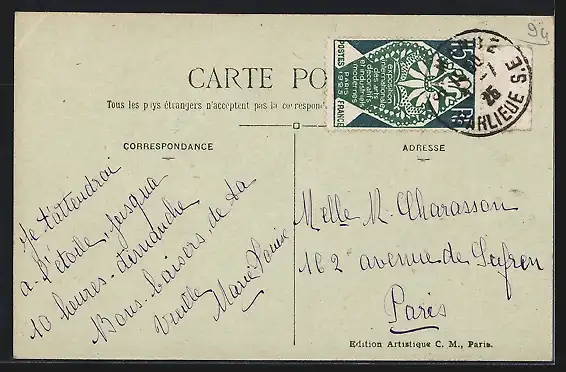 94
CARTE PO
Tous les pays étrangers n'acceptent pas la correspon
POSTES FRANCE
15
exposition
internationale
des arts
décoratifs
et industriels
modernes
PARIS
1925
25
BANLIEUE
CORRESPONDANCE
ADRESSE
Je t'attendrai
à l'étoile, jusqua
10 heures. dimanche
Bons baisers de ta
Vieille
Marie Louise
Melle M. Charasson
162 avenue de Sufren
Paris
Edition Artistique C. M., Paris.